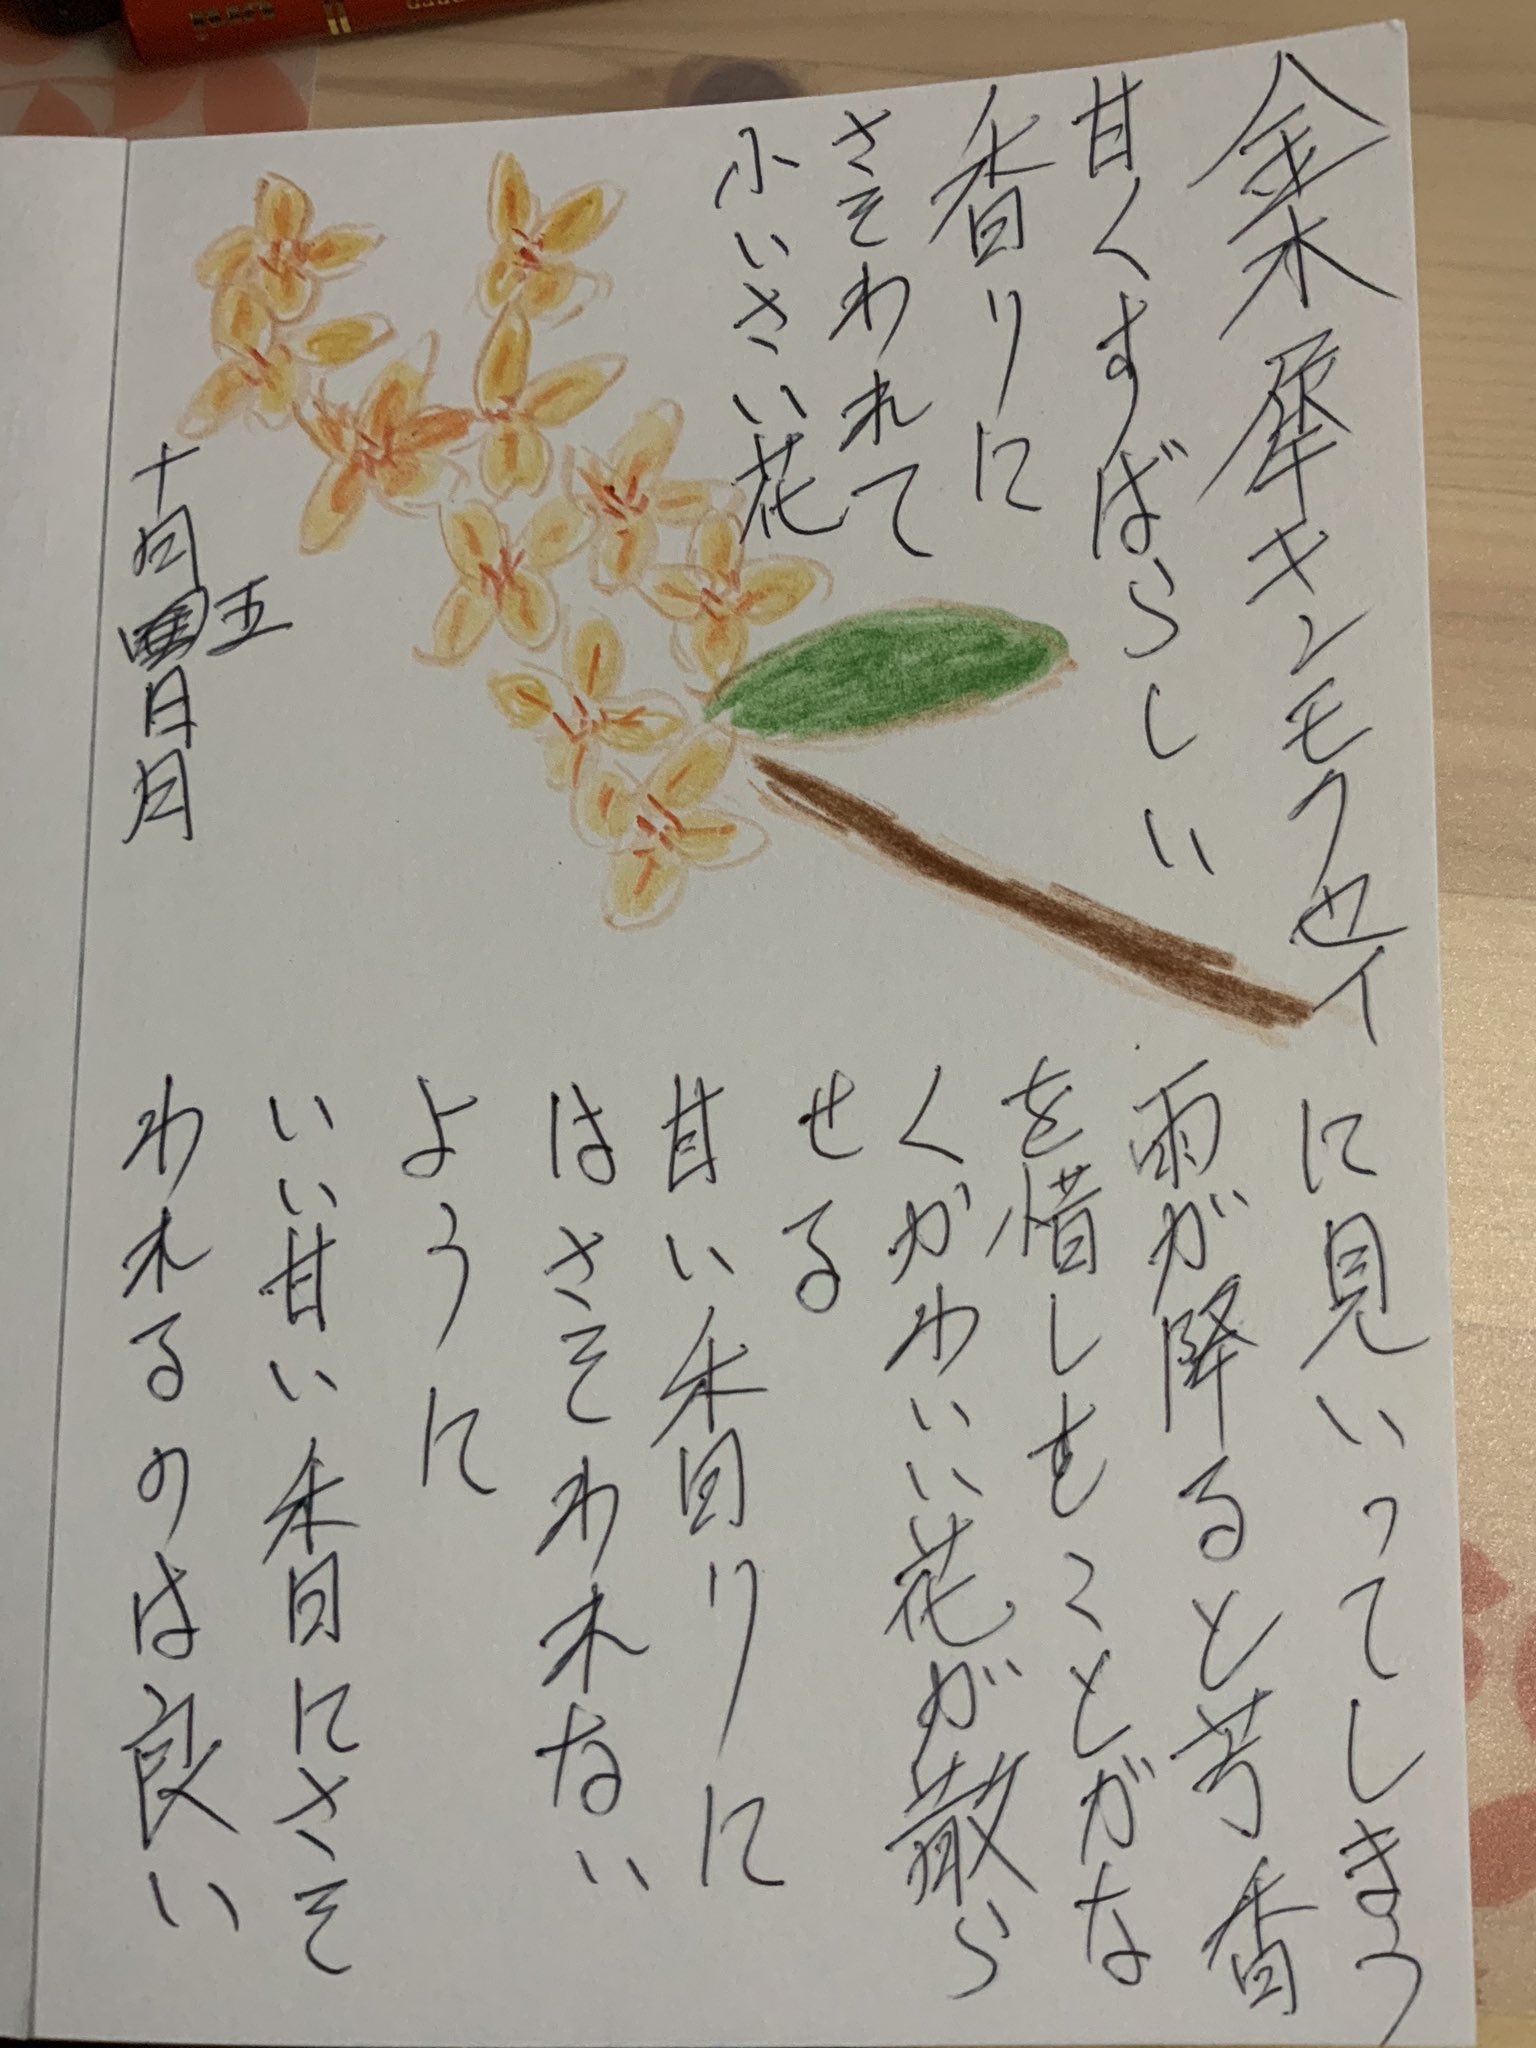 金木犀キンモクセイ
甘くすばらしい
香りに
さそわれて
小いさい花
に見いってしまう
雨が降ると芳香
を惜しもことがな
くかわいい花が散ら
せる
甘い香りに
はさそわれない
ように
いい甘い香にさそ
われるのは良い
十月五日月